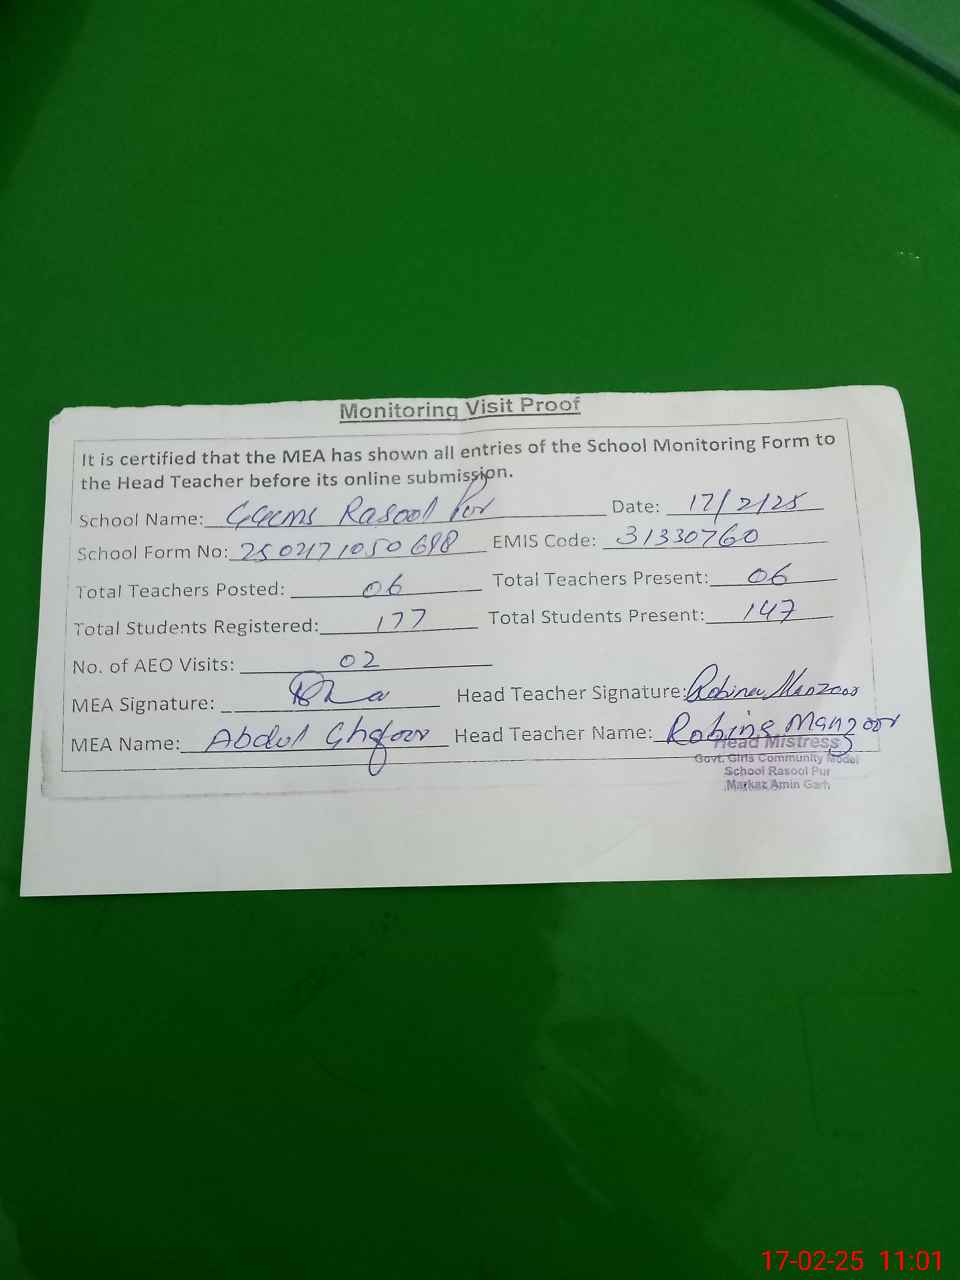 Monitoring Visit Proof
It is certified that the MEA has shown all entries of the School Monitoring Form to
the Head Teacher before its online submission.
School Name: GGCMS Rasool Pur Date: 17/2/25
School Form No: 2502171050698 EMIS Code: 31330760
Total Teachers Posted: 06 Total Teachers Present: 06
Total Students Registered: 177 Total Students Present: 147
No. of AEO Visits: 02
MEA Signature: Head Teacher Signature: Robina Manzoor
MEA Name: Abdul Ghafoor Head Teacher Name: Robina Manzoor
Head Mistress
Govt. Girls Community Model
School Rasool Pur
Markaz Amin Garh
17-02-25 11:01